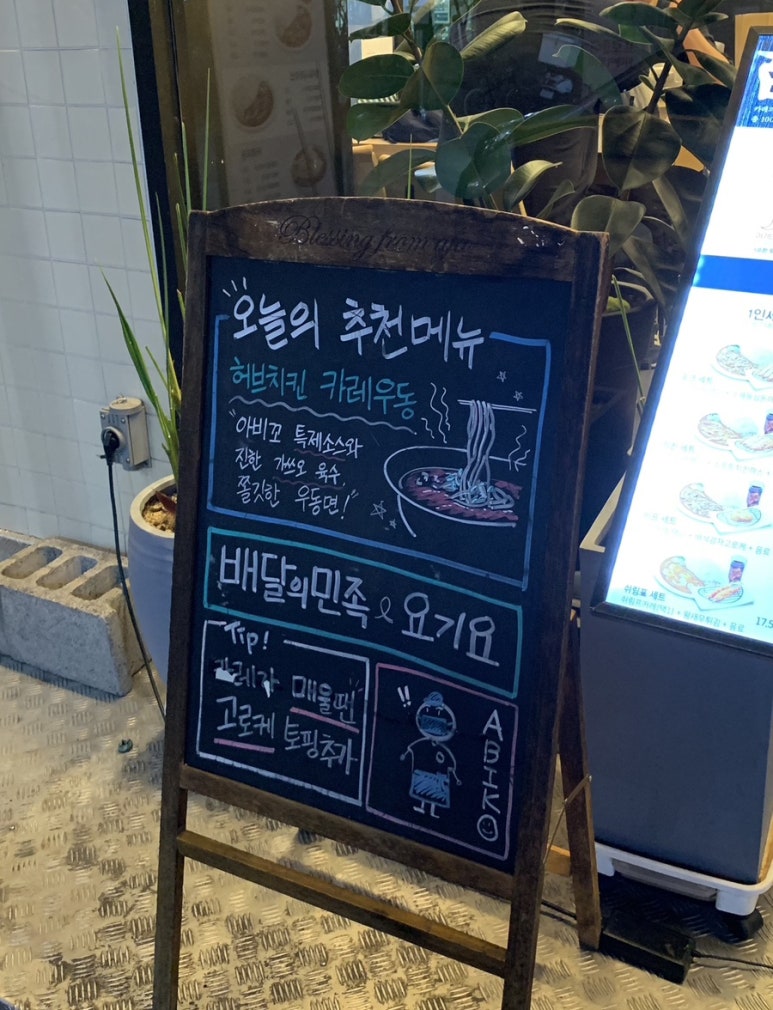 Blessing from
오늘의 추천메뉴
허브치킨 카레우동
"아비꼬 특제소스와
진한 가쓰오 육수,
쫄깃한 우동면!"
배달의민족 & 요기요
Tip!
카레가 매울땐
고로케 토핑추가
!!
ABIKO
1인세
쉬림프 세트
17.5